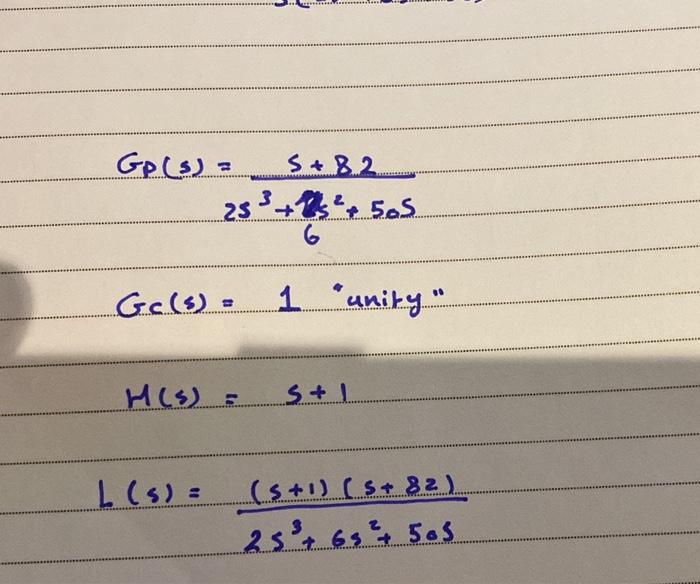 Gp(s) = S + 82
2S³ + s² + 50S
6
Gc(s) = 1 "unity"
H(s) = S + 1
L(s) = (s+1)(s+82)
2s³ + 6s² + 50s